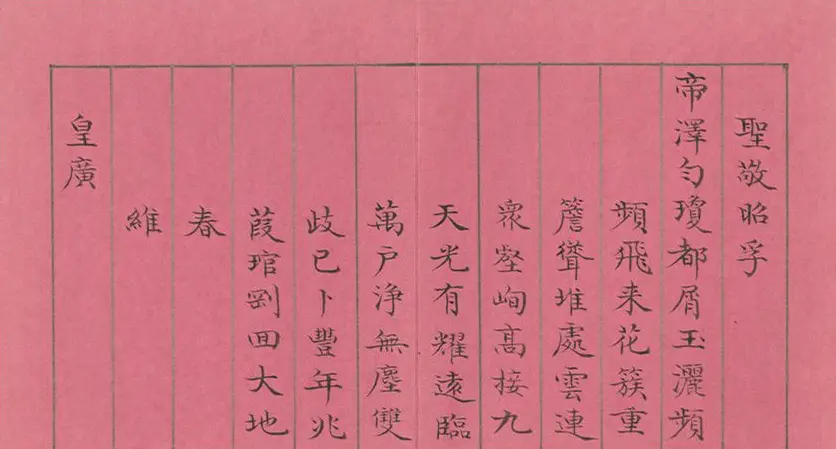 聖敬昭孚
帝澤勻瓊都屑玉灑頻
頻飛来花簇重
簷聳堆處雲連
衆壑峋高接九
天光有耀遠臨
萬戸淨無塵雙
歧已卜豐年兆
葭琯剛回大地
春
維
皇廣